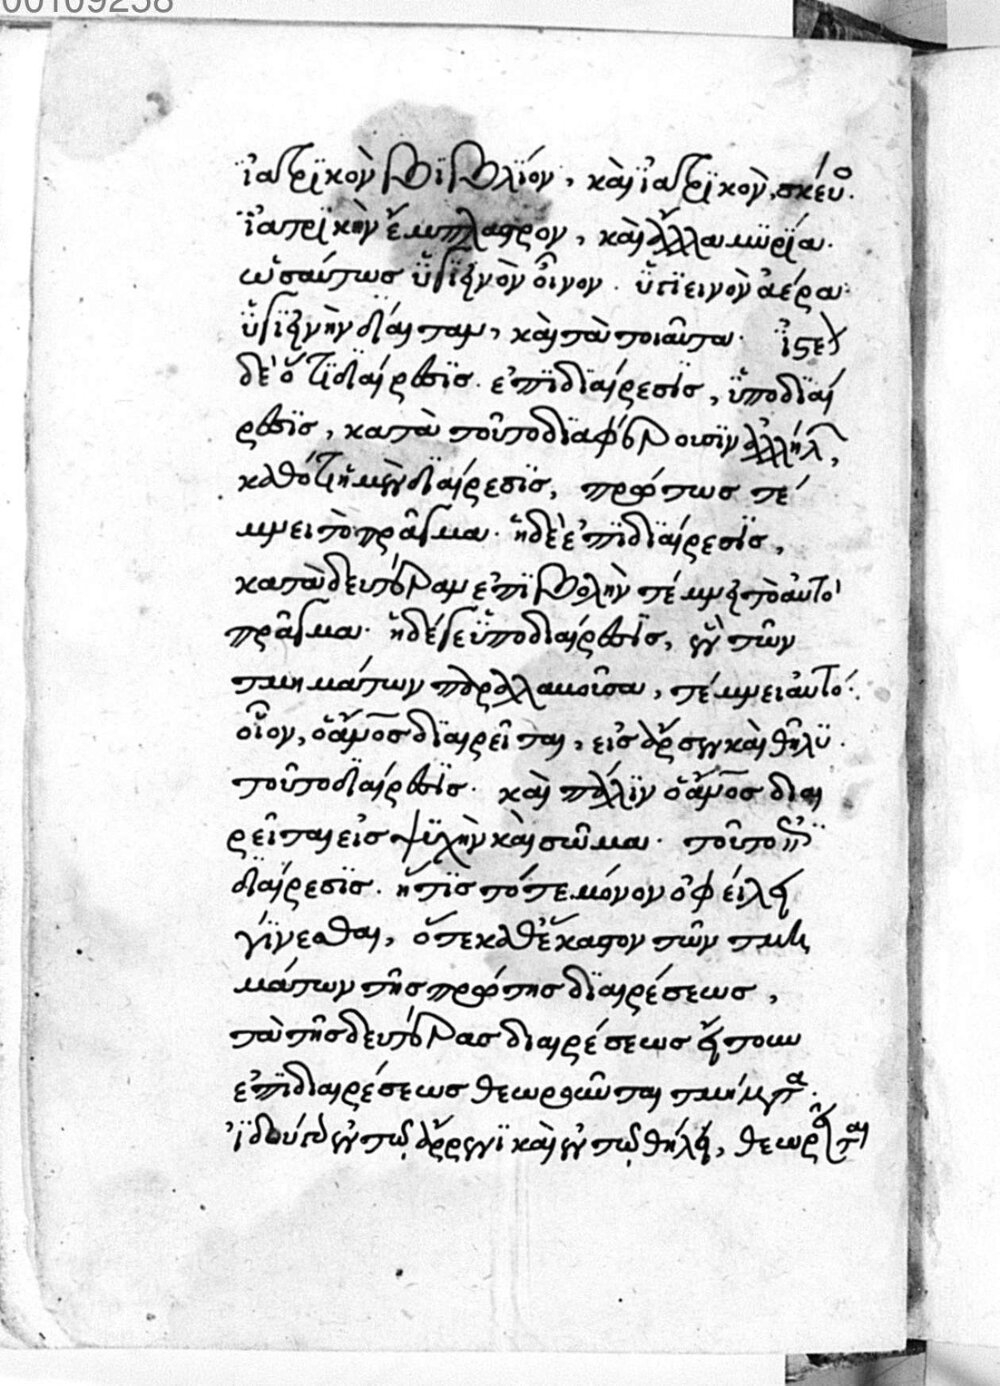 00109258
ἰατρικὸν βιβλίον, καὶ ἰατρικὸν σκεῦος.
ἰατρικὴν ἔμπλαστρον, καὶ ἄλλα μυρία.
ὡσαύτως ὑγιεινὸν οἶνον. ὑγιεινὸν ἀέρα.
ὑγιεινὴν δίαιταν, καὶ τὰ τοιαῦτα. ἰστέον
δὲ ὅτι διαίρεσις. ἐπιδιαίρεσις, ὑποδιαί
ρεσις, κατὰ τοῦτο διαφέρουσιν ἀλλήλων,
καθότι ἡ μὲν διαίρεσις, πρώτως τέ
μνει τὸ πρᾶγμα. ἡ δὲ ἐπιδιαίρεσις,
κατὰ δευτέραν ἐπιβολὴν τέμνει τὸ αὐτὸ
πρᾶγμα. ἡ δέ γε ὑποδιαίρεσις, ἓν τῶν
τμημάτων παραλαμοῦσα, τέμνει αὐτό.
οἷον, ὁ ἄνος διαιρεῖται, εἰς ἄρσεν καὶ θῆλυ.
τοῦτο διαίρεσις. καὶ πάλιν ὁ ἄνος διαι
ρεῖται εἰς ψυχὴν καὶ σῶμα. τοῦτο ἐπι
διαίρεσις. ἥτις τότε μόνον ὀφείλει
γίνεσθαι, ὅτε καθ' ἕκαστον τῶν τμη
μάτων τῆς πρώτης διαιρέσεως,
τὰ τῆς δευτέρας διαιρέσεως ἤτοι
ἐπιδιαιρέσεως θεωροῦνται τμήματα.
ἰδοὺ γὰρ ἐν τῷ ἄρρενι καὶ ἐν τῷ θήλει, θεωρεῖται